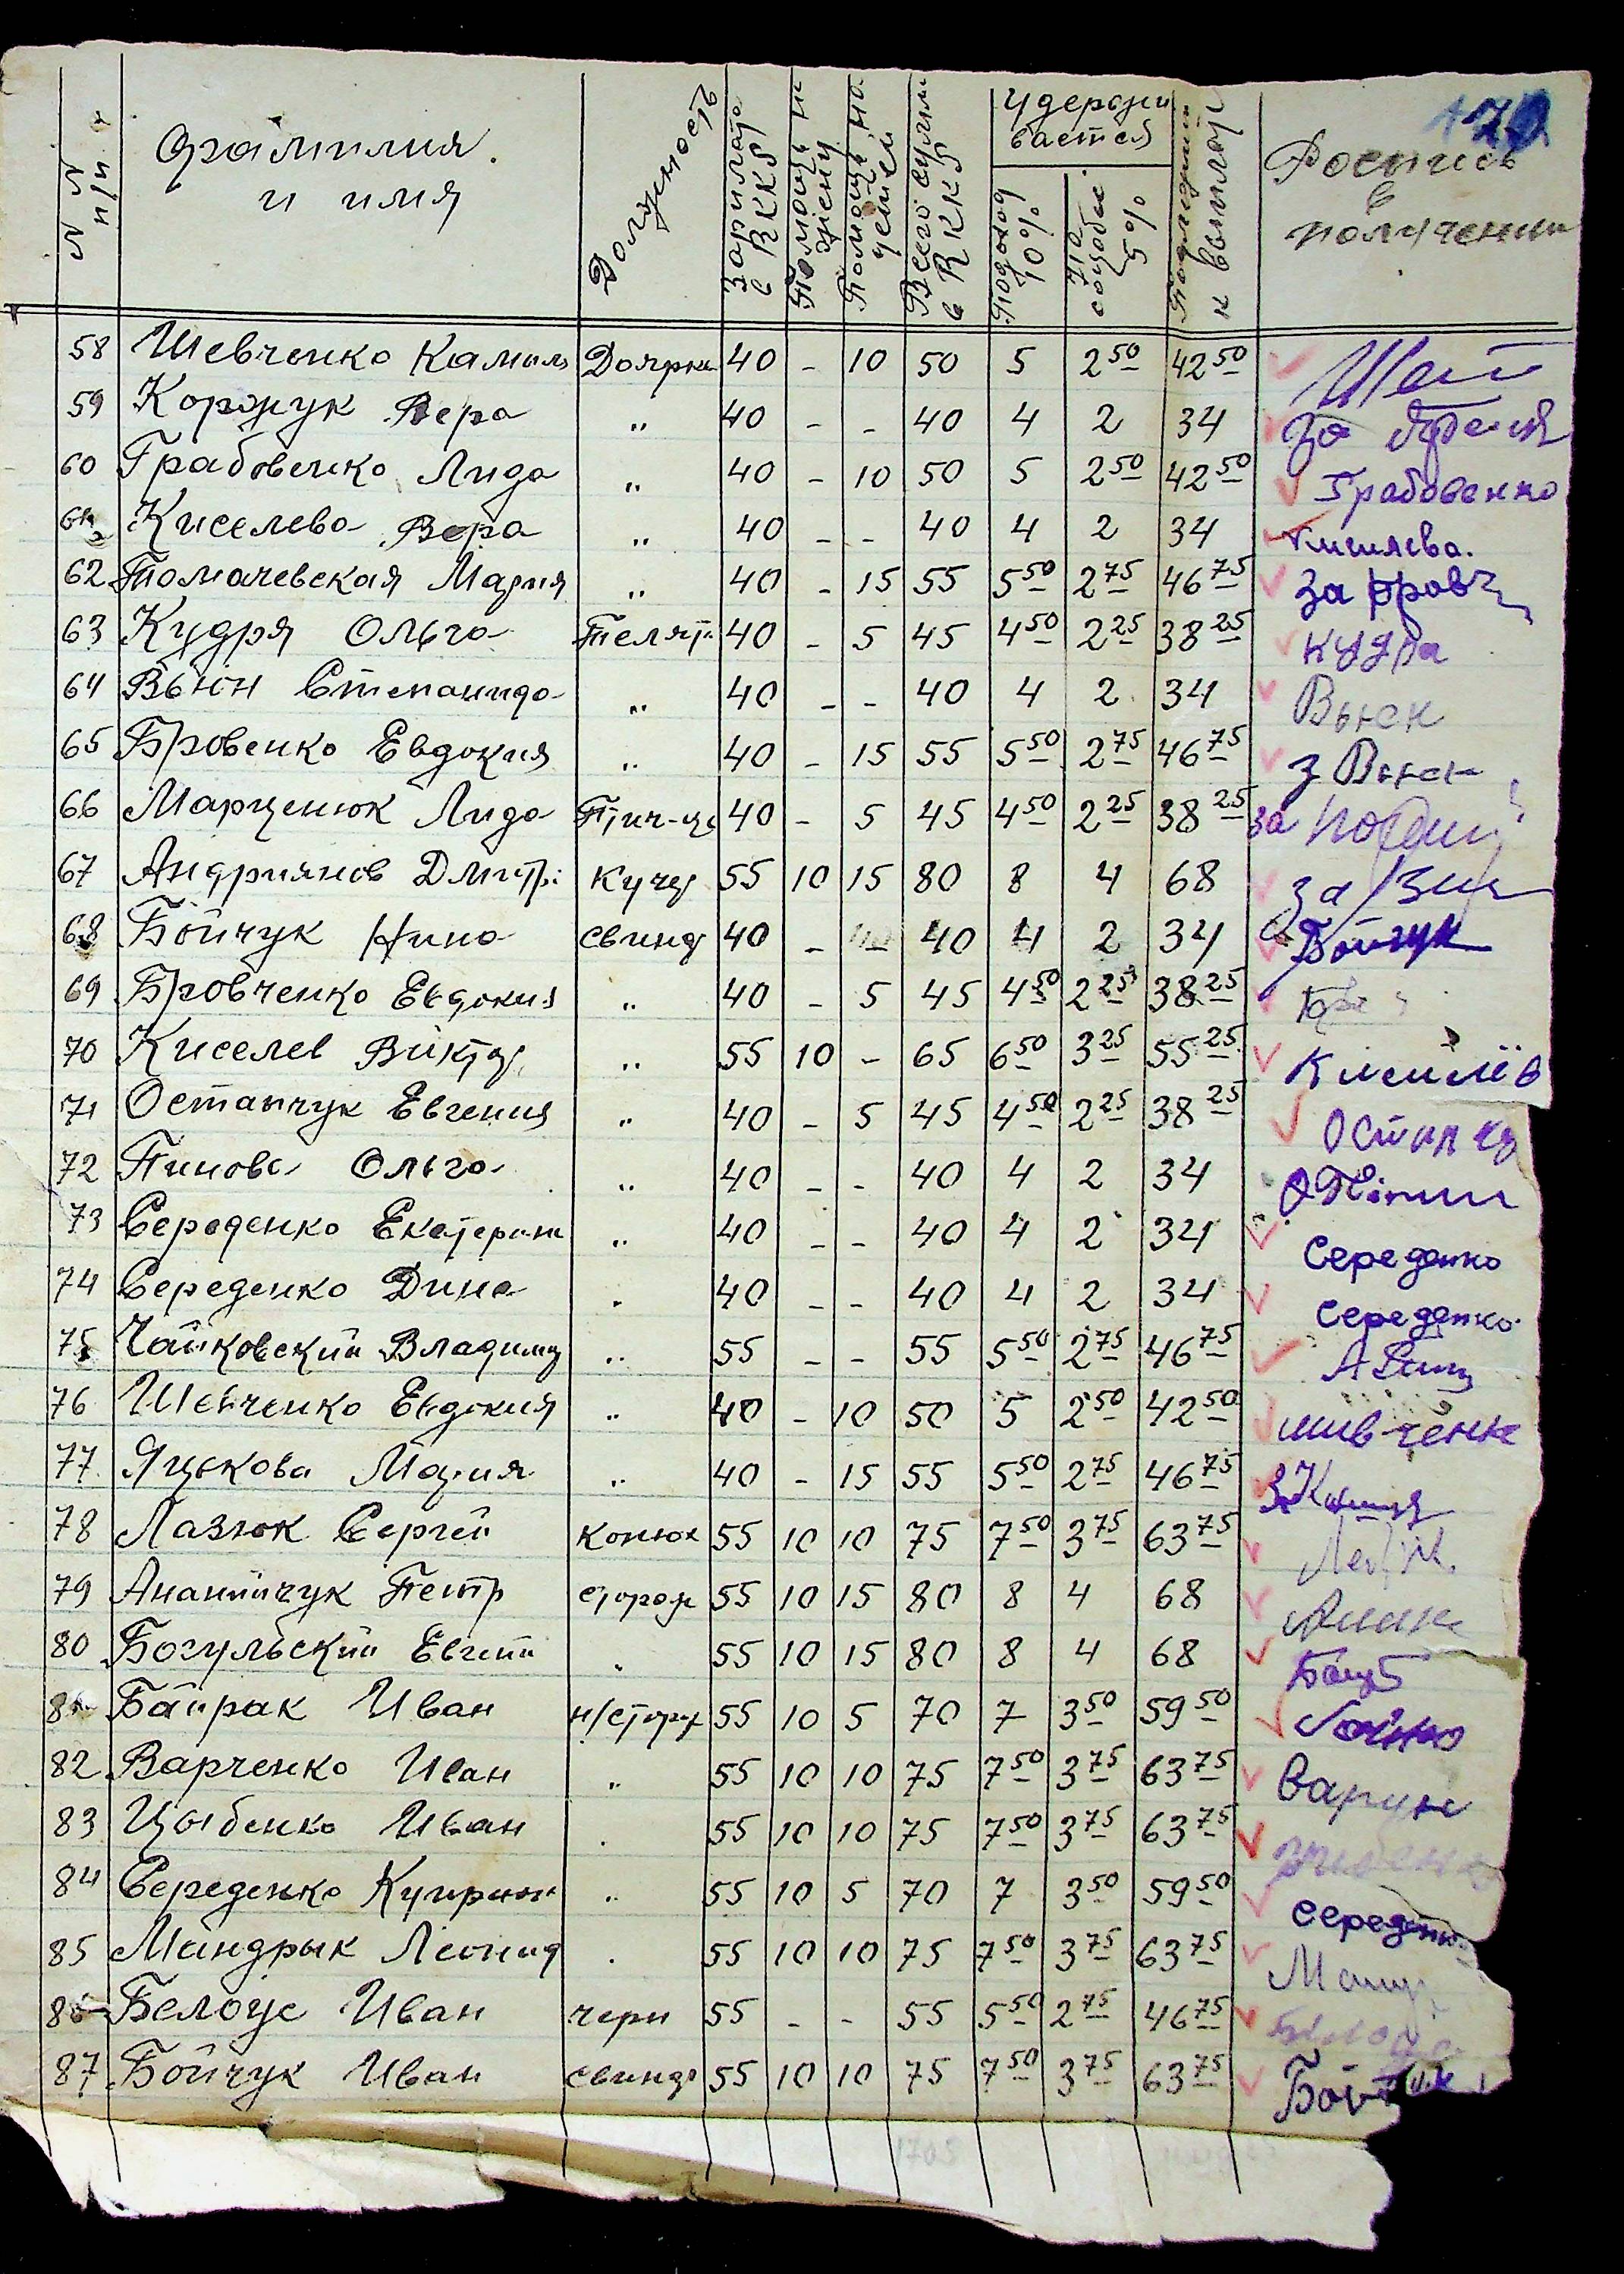 170
N N п/п
Фамилия и имя
Должность
Зарплата в RKKS
Помощь на жену
Помощь на детей
Всего сумма в RKKS
Удержи вается
Подоход 10%
соцобес. 5%
к выплате
Роспись в получении
58 Шевченко Камиль Доярка 40 - 10 50 5 2 50 42 50
59 Коржук Вера " 40 - - 40 4 2 34 За
60 Грабовенко Лида " 40 - 10 50 5 2 50 42 50 Грабовенко
61 Киселева Вера " 40 - - 40 4 2 34
62 Томачевская Мария " 40 - 15 55 5 50 2 75 46 75 За Бровч
63 Кудря Ольга Телят 40 - 5 45 4 50 2 25 38 25 Кудра
64 Вьюн Степанида " 40 - - 40 4 2 34 Вьюн
65 Бровенко Евдокия " 40 - 15 55 5 50 2 75 46 75 з Вьюн
66 Марценюк Лида Птич-ца 40 - 5 45 4 50 2 25 38 25 За
67 Андриянов Дмитр. Кучер 55 10 15 80 8 4 68 за
68 Бойчук Нина свинар 40 - - 40 4 2 34 Бойчук
69 Бровченко Евдокия " 40 - 5 45 4 50 2 25 38 25
70 Киселев Виктор " 55 10 - 65 6 50 3 25 55 25 Киселёв
71 Остапчук Евгения " 40 - 5 45 4 50 2 25 38 25
72 Пинова Ольга " 40 - - 40 4 2 34
73 Середенко Екатерина " 40 - - 40 4 2 34 Середенко
74 Середенко Дина " 40 - - 40 4 2 34 Середенко
75 Чайковский Владимир " 55 - - 55 5 50 2 75 46 75
76 Шевченко Евдокия " 40 - 10 50 5 2 50 42 50 шивченке
77 Яцькова Мария " 40 - 15 55 5 50 2 75 46 75
78 Лазюк Сергей конюх 55 10 10 75 7 50 3 75 63 75
79 Ананийчук Петр сторож 55 10 15 80 8 4 68
80 Богульский Евгени " 55 10 15 80 8 4 68
81 Байрак Иван н/сторож 55 10 5 70 7 3 50 59 50
82 Варченко Иван " 55 10 10 75 7 50 3 75 63 75
83 Цыбенко Иван " 55 10 10 75 7 50 3 75 63 75
84 Середенко Куприян " 55 10 5 70 7 3 50 59 50 Середенко
85 Мандрык Леонид " 55 10 10 75 7 50 3 75 63 75
86 Белоус Иван черн 55 - - 55 5 50 2 75 46 75
87 Бойчук Иван свинар 55 10 10 75 7 50 3 75 63 75